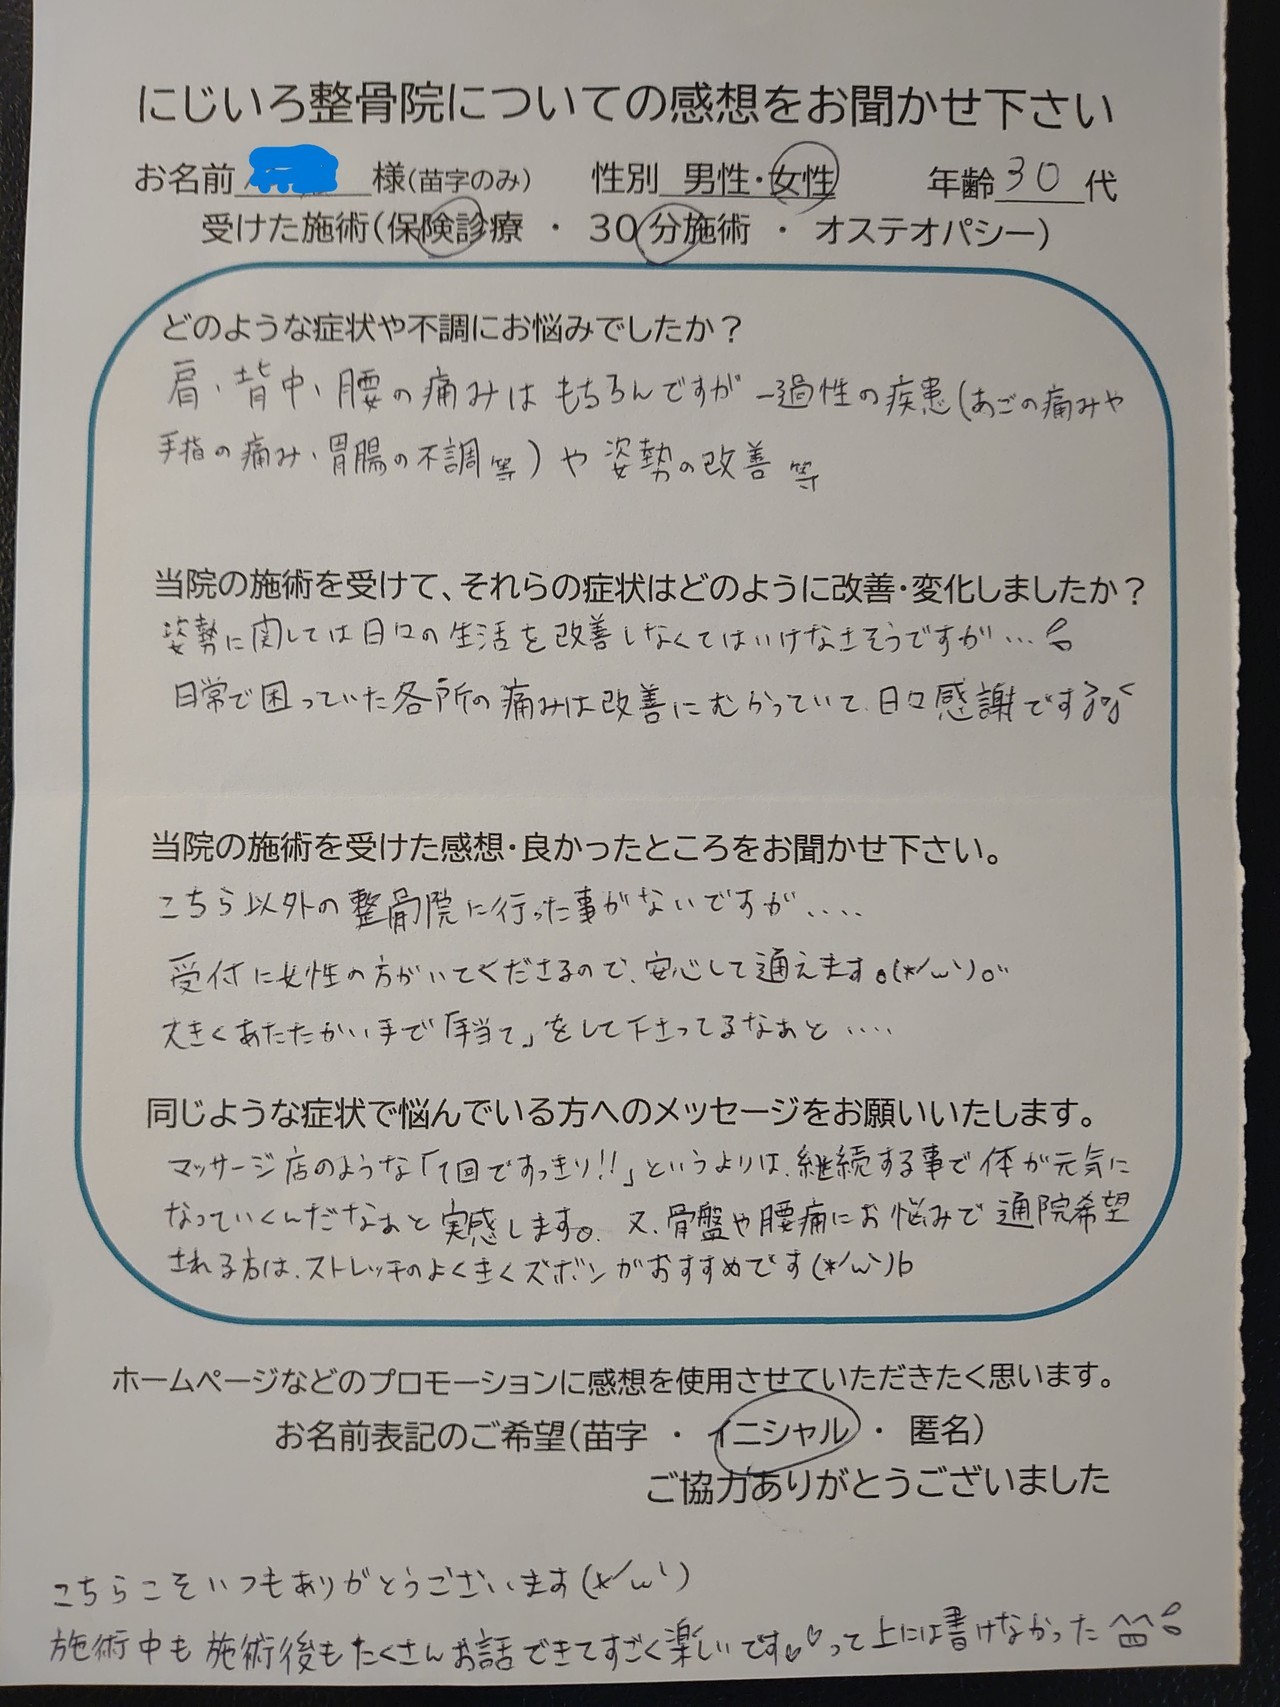 にじいろ整骨院についての感想をお聞かせ下さい
お名前 様(苗字のみ) 性別 男性・女性 年齢30代
受けた施術(保険診療 ・ 30分施術 ・ オステオパシー)
どのような症状や不調にお悩みでしたか？
肩、背中、腰の痛みはもちろんですが 一過性の疾患(あごの痛みや
手指の痛み、胃腸の不調等)や姿勢の改善等
当院の施術を受けて、それらの症状はどのように改善・変化しましたか？
姿勢に関しては日々の生活を改善しなくてはいけなさそうですが…
日常で困っていた各所の痛みは改善にむかっていて、日々感謝です
当院の施術を受けた感想・良かったところをお聞かせ下さい。
こちら以外の整骨院に行った事がないですが、、、、
受付に女性の方がいてくださるので、安心して通えます。(*'ω')。"
大きくあたたかい手で「手当て」をして下さってるなぁと・・・・
同じような症状で悩んでいる方へのメッセージをお願いいたします。
マッサージ店のような「1回ですっきり!!」というよりは、継続する事で体が元気に
なっていくんだなぁと実感します。又、骨盤や腰痛にお悩みで通院希望
される方は、ストレッチのよくきくズボンがおすすめです(*'ω')b
ホームページなどのプロモーションに感想を使用させていただきたく思います。
お名前表記のご希望(苗字 ・ イニシャル ・ 匿名)
ご協力ありがとうございました
こちらこそいつもありがとうございます(*'ω')
施術中も施術後もたくさんお話できてすごく楽しいです♡♡って上には書けなかった^^